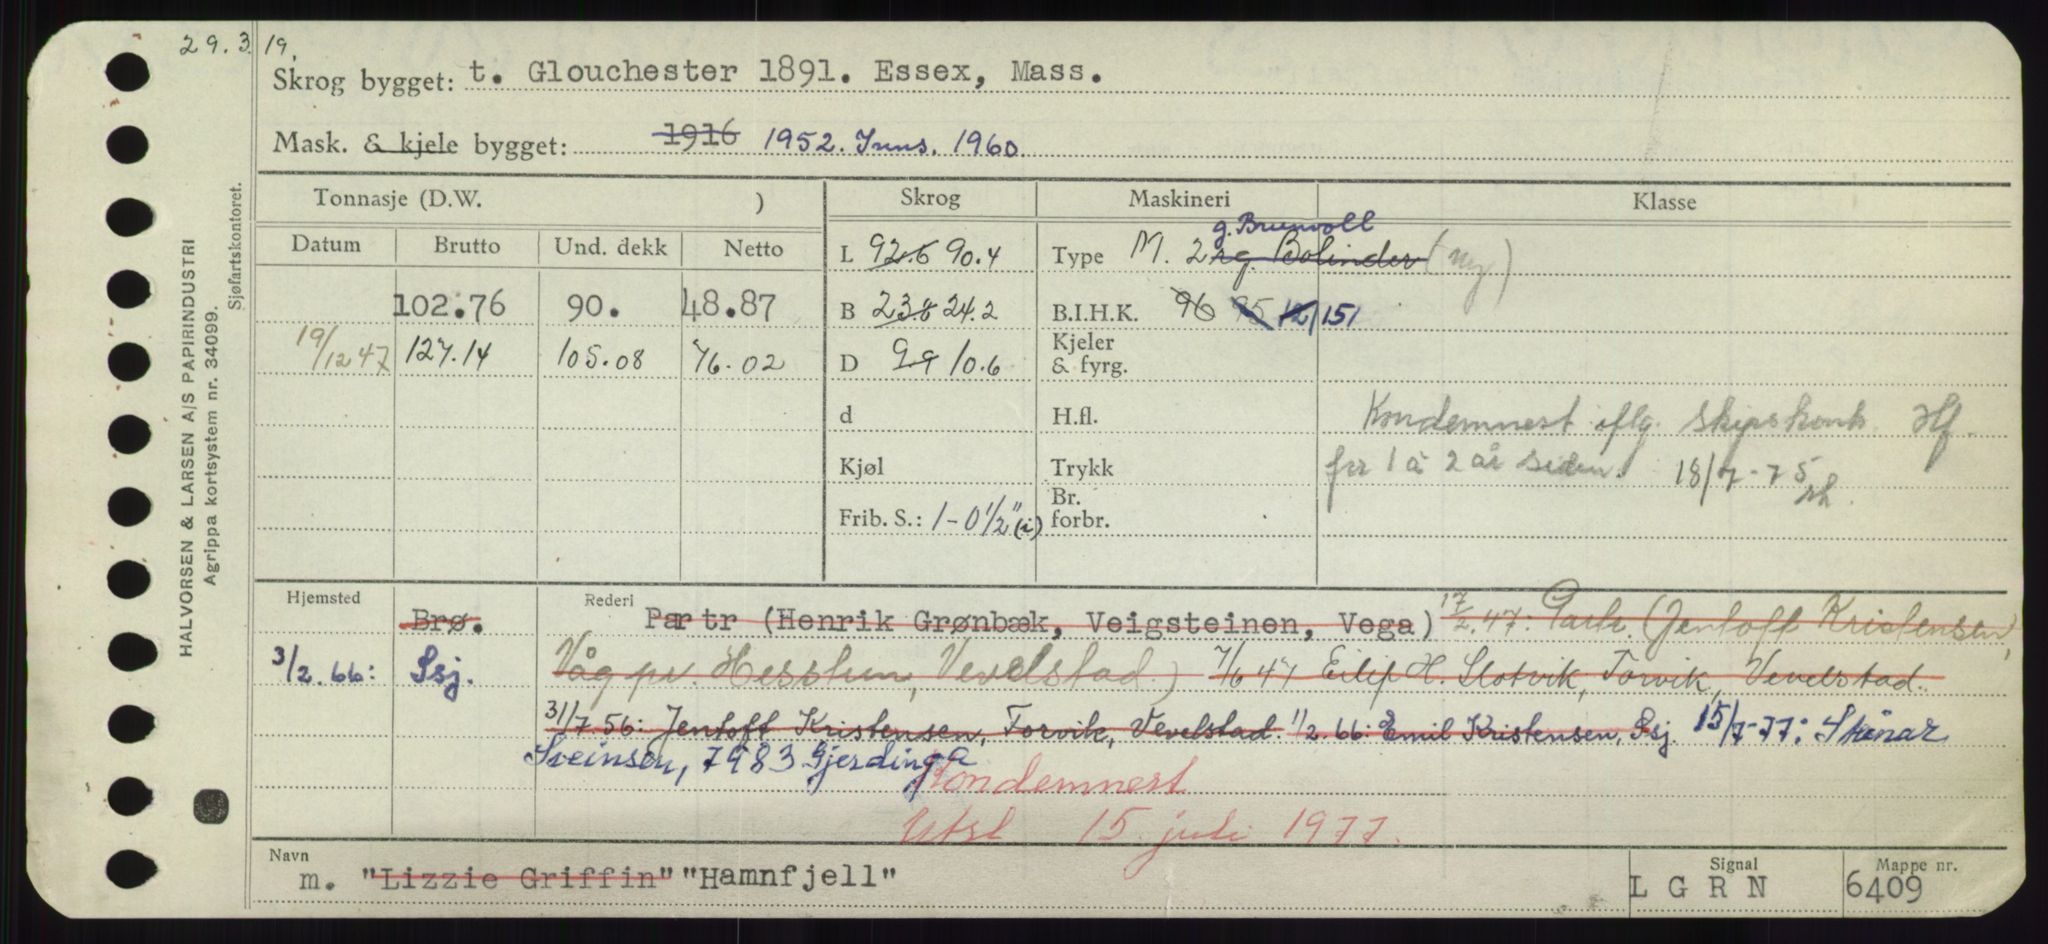 29.3.19.
Skrog bygget: t. Glouchester 1891. Essex, Mass.
Mask. & kjele bygget: 1916 1952. Inns. 1960.
Tonnasje (D.W. ) Skrog Maskineri Klasse
Datum Brutto Und. dekk Netto
L 92.6 90.4 Type M. 2 rg. Bolinder (ny)
g. Brunvoll
102.76 90. 48.87 B 23.8 24.2 B.I.H.K. 96 95 12/151
19/12 47 127.14 105.08 76.02 D 9.9 10.6 Kjeler & fyrg.
d H.fl. Kondemnest iflg. Skipskontr. Hf.
Kjøl Trykk for 1 à 2 år siden. 18/7-75
Frib. S.: 1-0 1/2" (i) Br. forbr.
Hjemsted Rederi
Brø. Partr (Henrik Grønbæk, Veigsteinen, Vega) 17/2.47: Partr. (Jentoft Kristensen,
3/2.66: Ssj. Våg pr. Hesstun, Vevelstad) 7/6 47 Eilif H. Slotvik, Forvik, Vevelstad.
31/7.56: Jentoft Kristensen, Forvik, Vevelstad. 11/2.66: Emil Kristensen, Ssj. 15/7-77: Steinar
Sveinsen, 7983 Gjerdinga
Kondemnert
Utsl 15. juli 1977.
Navn Signal Mappe nr.
m. "Lizzie Griffin" "Hamnfjell" LGRN 6409
HALVORSEN & LARSEN A/S PAPIRINDUSTRI
Agrippa kortsystem nr. 34099.
Sjøfartskontoret.